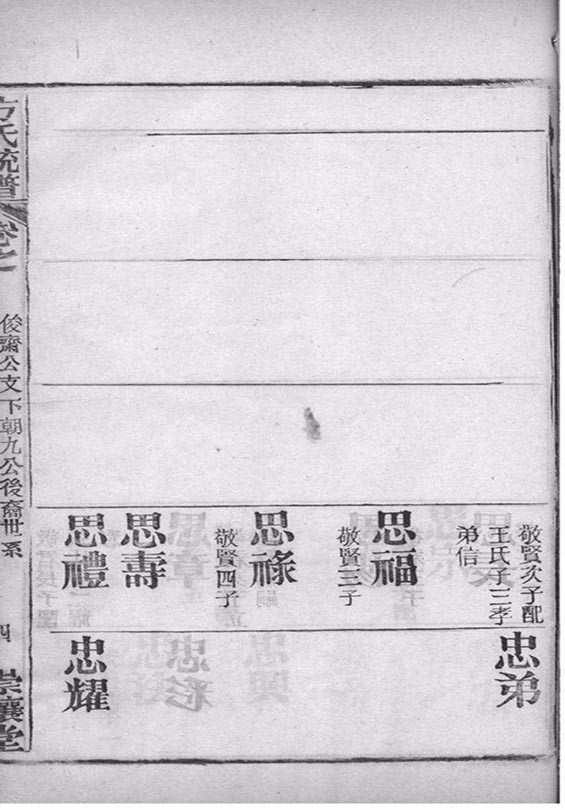 敬賢次子配
王氏子三孝
弟信
思福
敬賢三子
思祿
敬賢四子
思壽
思禮
忠弟
忠耀
方氏統譜
卷之
俊齋公支下朝九公後裔世系
四
崇讓堂